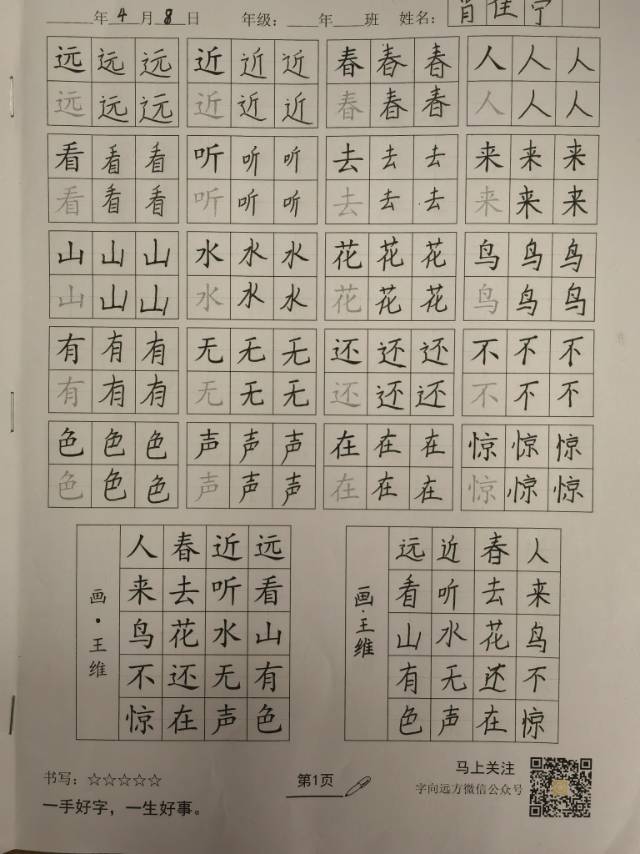 年 4 月 8 日 年级: 年 班 姓名: 肖佳宁
远远远 近近近 春春春 人人人
远远远 近近近 春春春 人人人
看看看 听听听 去去去 来来来
看看看 听听听 去去去 来来来
山山山 水水水 花花花 鸟鸟鸟
山山山 水水水 花花花 鸟鸟鸟
有有有 无无无 还还还 不不不
有有有 无无无 还还还 不不不
色色色 声声声 在在在 惊惊惊
色色色 声声声 在在在 惊惊惊
画·王维
远看山有色
近听水无声
春去花还在
人来鸟不惊
画·王维
远看山有色
近听水无声
春去花还在
人来鸟不惊
书写: ☆☆☆☆☆
一手好字，一生好事。
第1页
马上关注
字向远方微信公众号